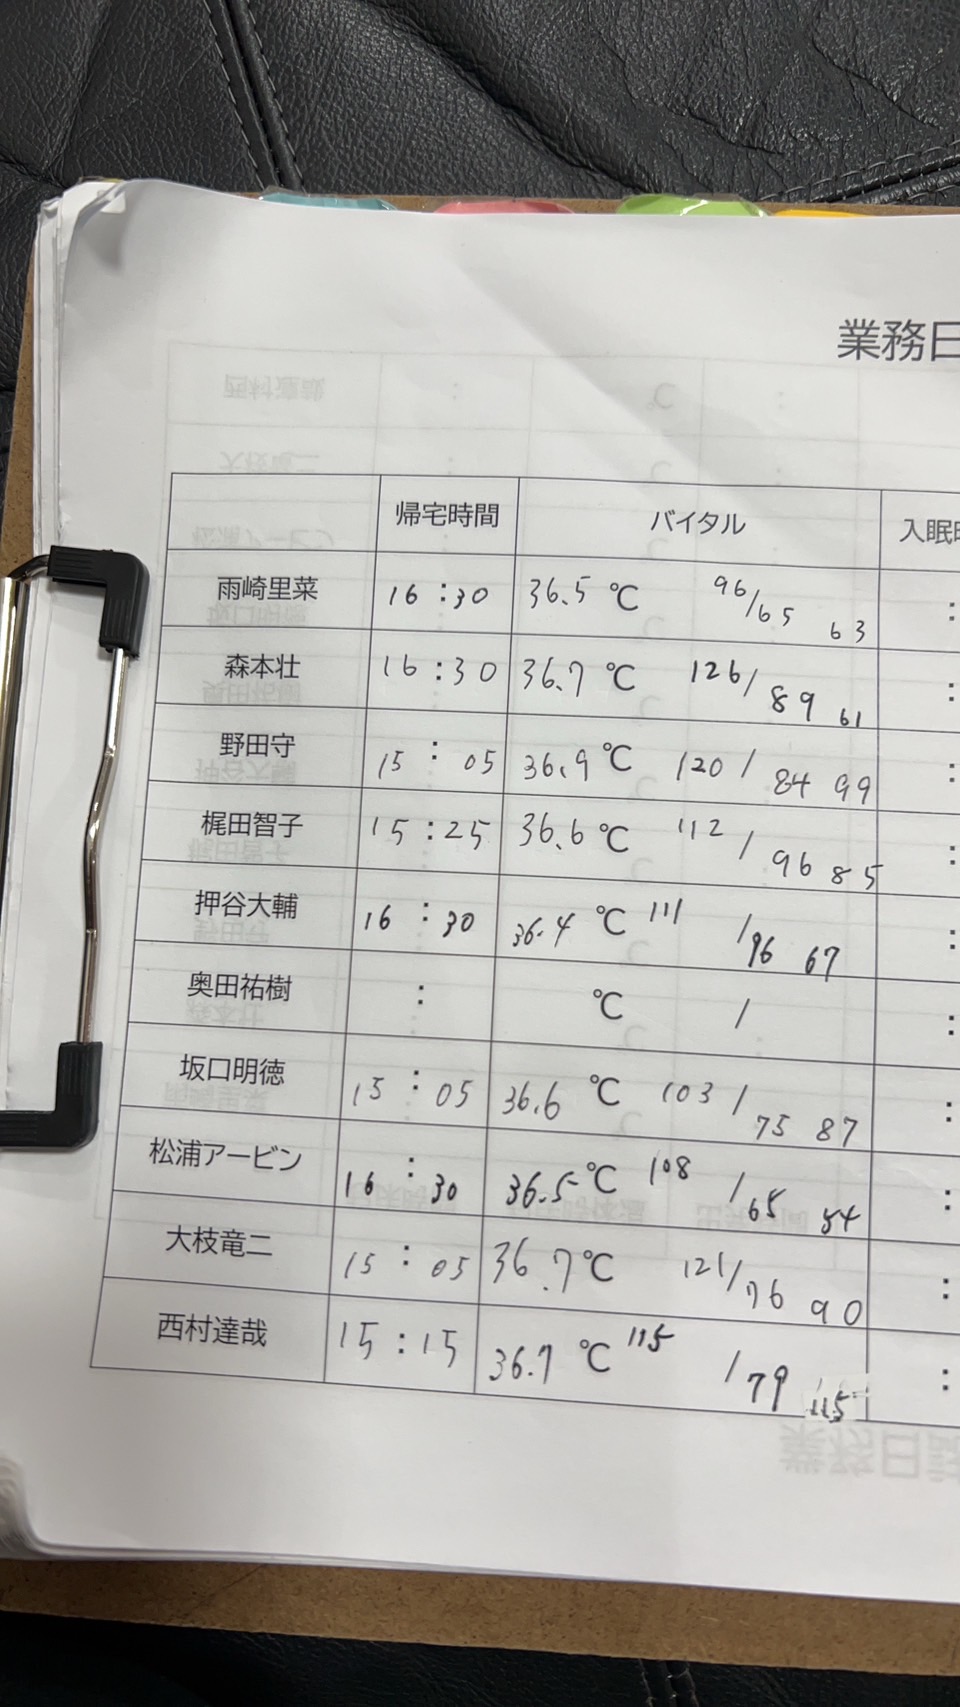 業務日
帰宅時間 バイタル 入眠時
雨崎里菜 16:30 36.5 ℃ 96/65 63 :
森本壮 16:30 36.7 ℃ 126/89 61 :
野田守 15:05 36.9 ℃ 120/84 99 :
梶田智子 15:25 36.6 ℃ 112/96 85 :
押谷大輔 16:30 36.4 ℃ 111/96 67 :
奥田祐樹 : ℃ / :
坂口明徳 15:05 36.6 ℃ 103/75 87 :
松浦アービン 16:30 36.5 ℃ 108/65 54 :
大枝竜二 15:05 36.7 ℃ 121/76 90 :
西村達哉 15:15 36.7 ℃ 115/79 115 :